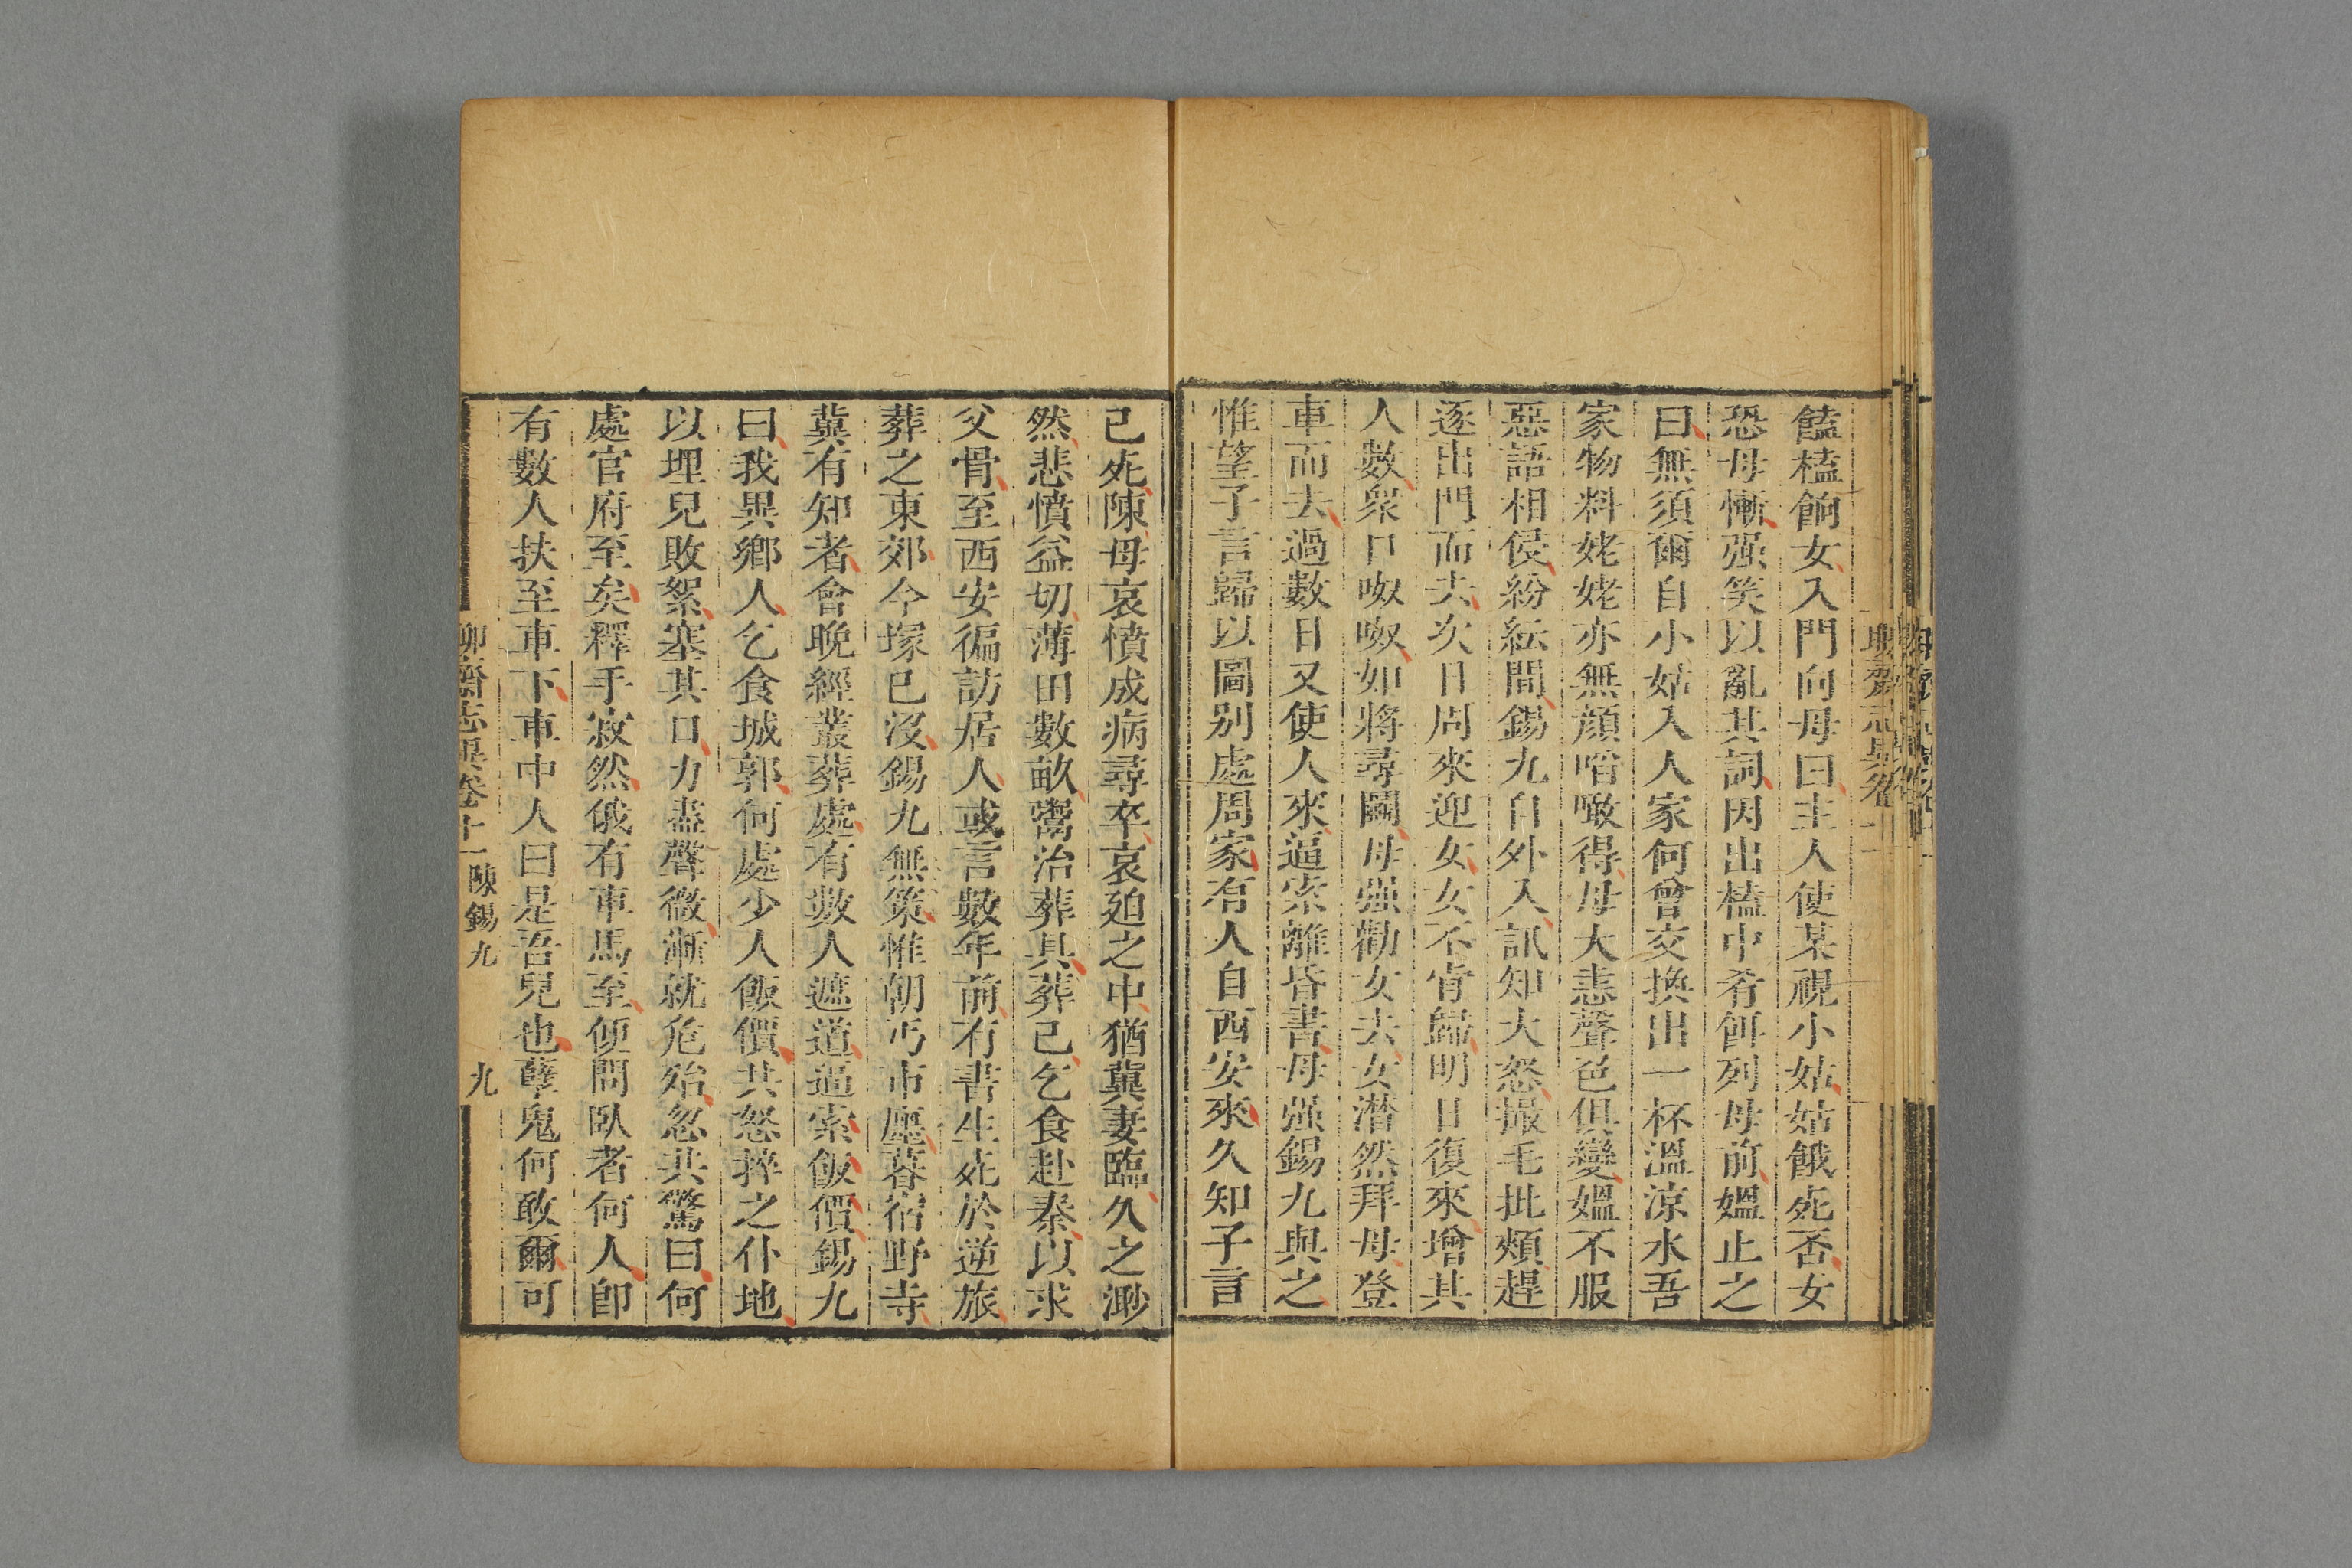 饁榼餉女入門向母曰主人使某視小姑姑餓死否女
恐母慚强笑以亂其詞因出榼中肴餌列母前媼止之
曰無須爾自小姑入人家何曾交換出一杯溫涼水吾
家物料姥姥亦無顔啗噉得母大恚聲色俱變媼不服
惡語相侵紛紜間錫九自外入訊知大怒撮毛批頰趕
逐出門而去次日周來迎女女不肯歸明日復來增其
人數衆口呶呶如將尋鬭母强勸女去女潸然拜母登
車而去過數日又使人來逼索離昏書母强錫九與之
惟望子言歸以圖别處周家有人自西安來久知子言
已死陳母哀憤成病尋卒哀廹之中猶冀妻臨久之渺
然悲憤益切薄田數畝鬻治葬具葬已乞食赴秦以求
父骨至西安徧訪居人或言數年前有書生死於逆旅
葬之東郊今塚已沒錫九無策惟朝丐市廛暮宿野寺
冀有知者會晚經叢葬處有數人遮道逼索飯價錫九
曰我異鄉人乞食城郭何處少人飯價共怒捽之仆地
以埋兒敗絮塞其口力盡聲微漸就危殆忽共驚曰何
處官府至矣釋手寂然俄有車馬至便問臥者何人卽
有數人扶至車下車中人曰是吾兒也孽鬼何敢爾可
聊齋志異卷十一 陳錫九 九